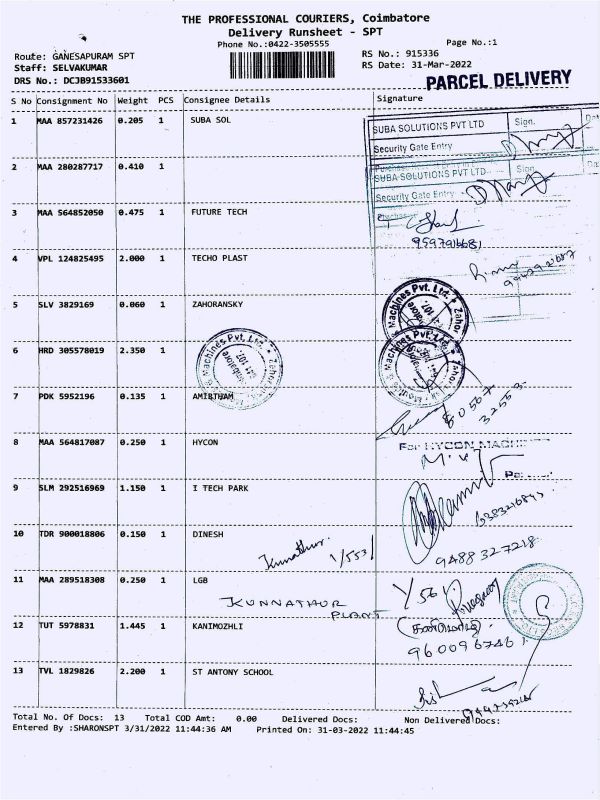 THE PROFESSIONAL COURIERS, Coimbatore
Delivery Runsheet - SPT
Phone No.:0422-3505555
Page No.:1
Route: GANESAPURAM SPT
RS No.: 915336
Staff: SELVAKUMAR
RS Date: 31-Mar-2022
DRS No.: DCJB91533601
PARCEL DELIVERY
S No Consignment No Weight PCS Consignee Details Signature
1 MAA 857231426 0.205 1 SUBA SOL
SUBA SOLUTIONS PVT LTD Sign.
Security Gate Entry
2 MAA 280287717 0.410 1
SUBA SOLUTIONS PVT LTD Sign
Security Gate Entry
3 MAA 564852050 0.475 1 FUTURE TECH
9597916681
4 VPL 124825495 2.000 1 TECHO PLAST
5 SLV 3829169 0.060 1 ZAHORANSKY
Machines Pvt. Ltd. Zahor
6 HRD 305578019 2.350 1
Machines Pvt. Ltd.
7 PDK 5952196 0.135 1 AMIRTHAM
8 MAA 564817087 0.250 1 HYCON
For HYCON
9 SLM 292516969 1.150 1 I TECH PARK
10 TDR 900018806 0.150 1 DINESH
Kunnathur. 1/553/
9488327218
11 MAA 289518308 0.250 1 LGB
KUNNATHUR
PLANT
12 TUT 5978831 1.445 1 KANIMOZHLI
(கனிமொழி)
9600967461
13 TVL 1829826 2.200 1 ST ANTONY SCHOOL
Total No. Of Docs: 13 Total COD Amt: 0.00 Delivered Docs: Non Delivered Docs:
Entered By :SHARONSPT 3/31/2022 11:44:36 AM Printed On: 31-03-2022 11:44:45